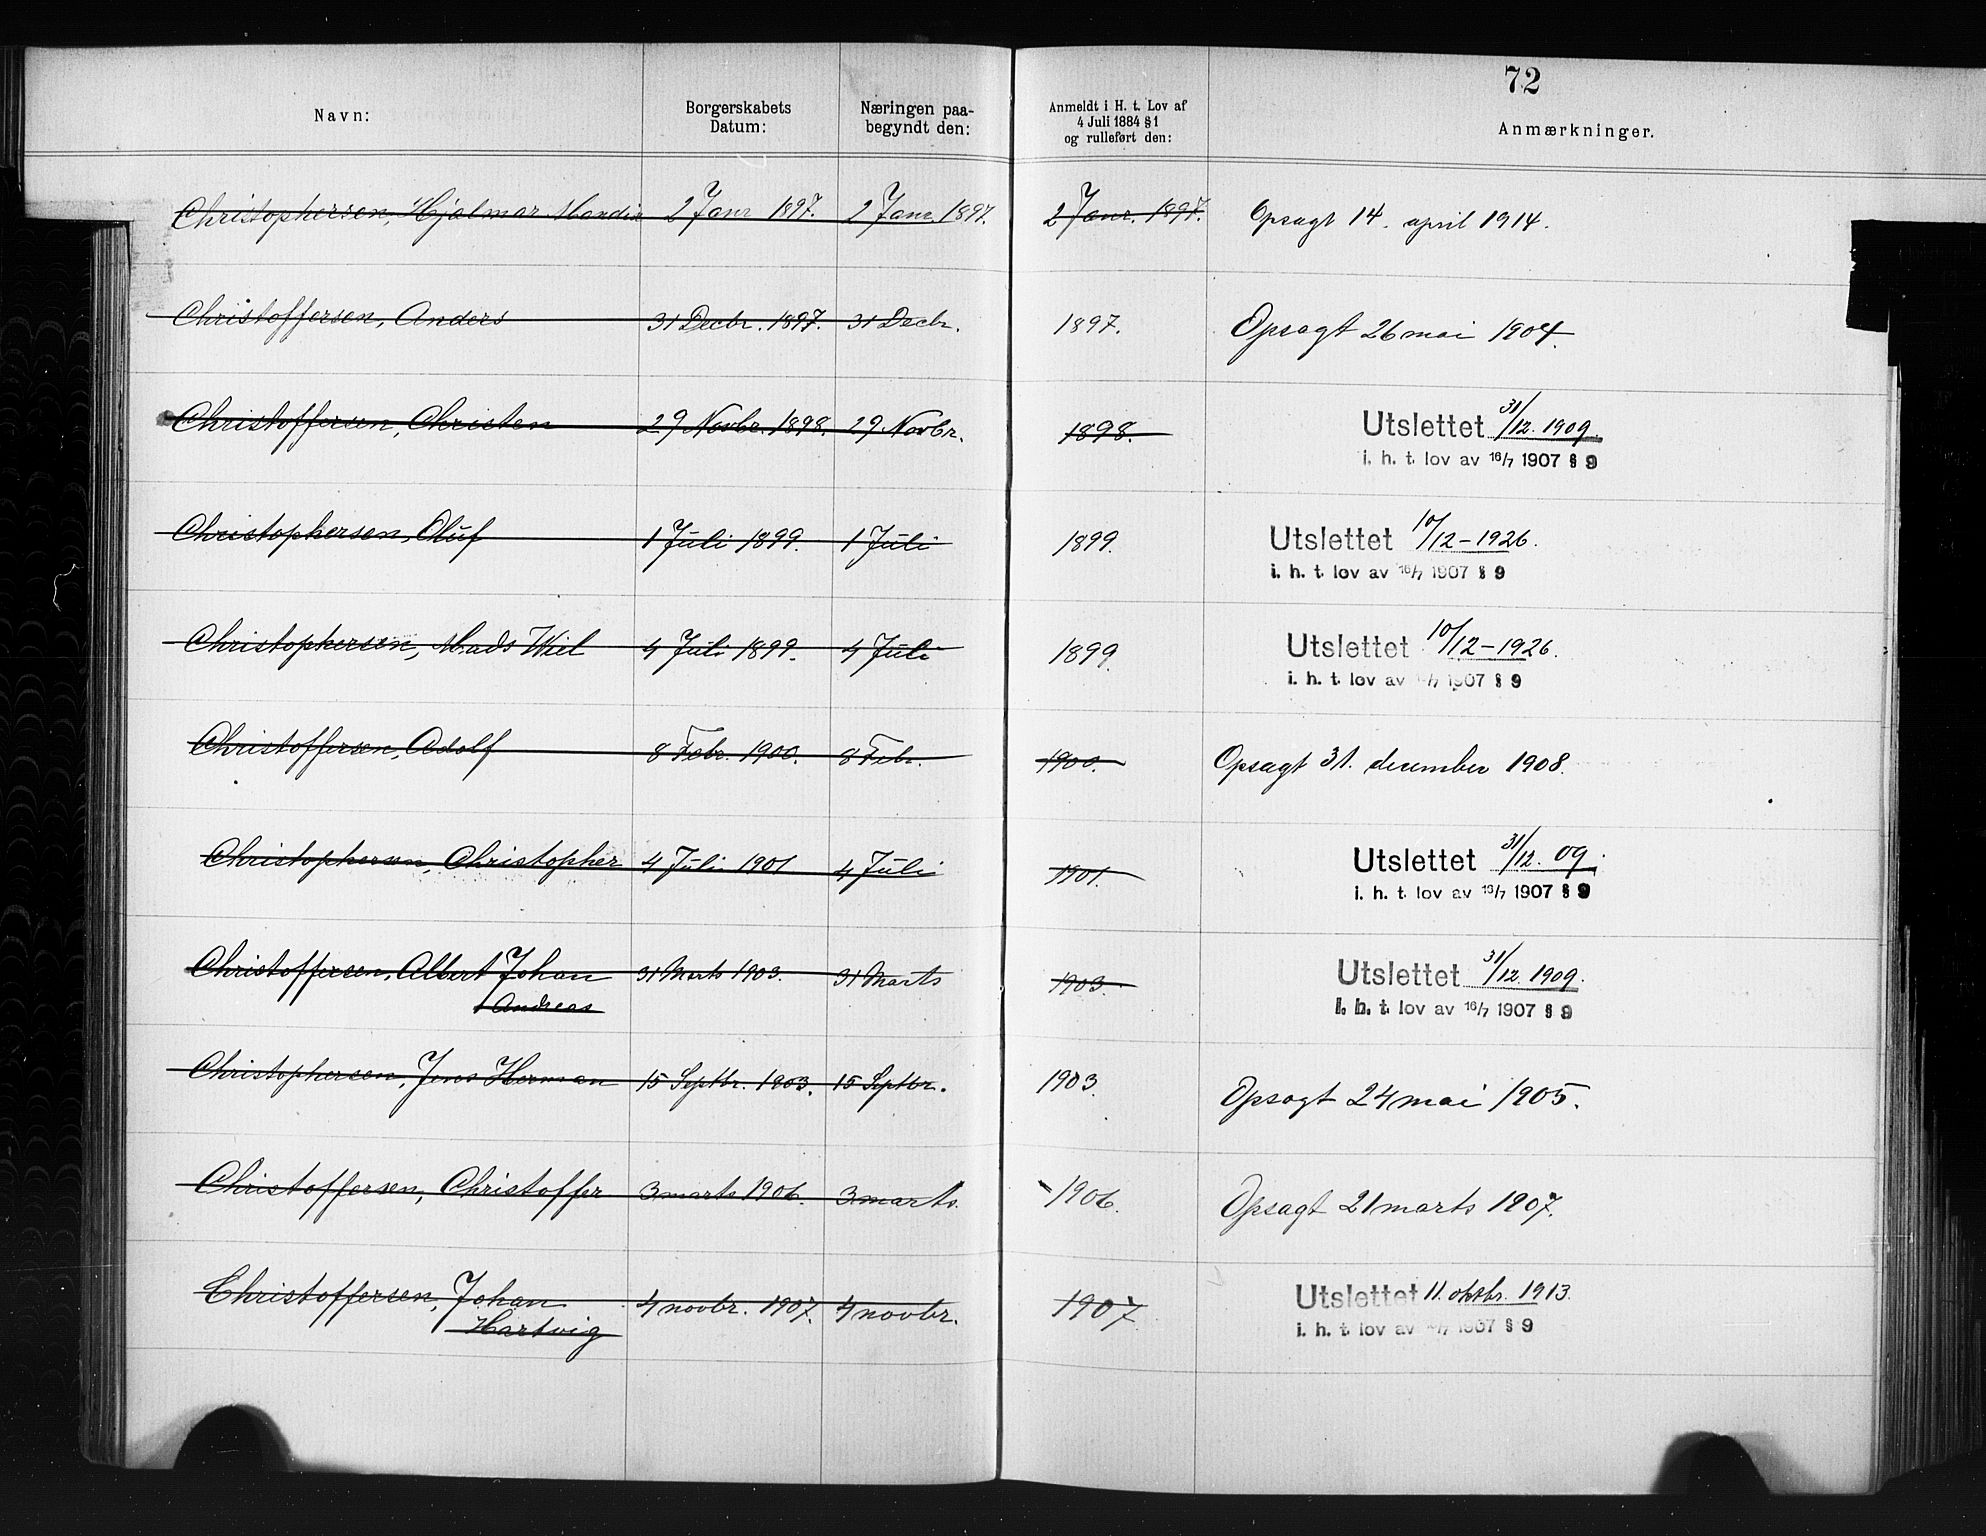 72
Navn:
Borgerskabets
Datum:
Næringen paa-
begyndt den:
Anmeldt i H. t. Lov af
4 Juli 1884 § 1
og rulleført den:
Anmærkninger.
Christophersen, Hjalmar 2 Janr 1897. 2 Janr. 1897. 2 Janr. 1897. Opsagt 14. april 1914.
Christoffersen, Anders 31 Decbr. 1897. 31 Decbr. 1897. Opsagt 26 mai 1904.
Christoffersen, Christen 29 Novbr. 1898. 29 Novbr. 1898. Utslettet 31/12. 1909.
i. h. t. lov av 16/7 1907 § 9
Christophersen, Oluf 1 Juli 1899. 1 Juli 1899. Utslettet 10/12-1926.
i. h. t. lov av 16/7 1907 § 9
Christophersen, Mads Wiel 4 Juli 1899. 4 Juli 1899. Utslettet 10/12-1926.
i. h. t. lov av /7 1907 § 9
Christoffersen, Adolf 8 Febr. 1900. 8 Febr. 1900. Opsagt 31. december 1908.
Christophersen, Christopher 4 Juli 1901 4 Juli 1901. Utslettet 31/12. 09.
i. h. t. lov av 16/7 1907 § 9
Christoffersen, Albert Johan 31 Marts 1903. 31 Marts 1903. Utslettet 31/12. 1909.
Andreas i. h. t. lov av 16/7 1907 § 9
Christophersen, Jens Herman 15 Septbr. 1903. 15 Septbr. 1903. Opsagt 24 mai 1905.
Christoffersen, Christoffer 3 marts 1906. 3 marts. 1906. Opsagt 21 marts 1907.
Christoffersen, Johan 4 novbr. 1907. 4 novbr. 1907 Utslettet 11. oktbr. 1913.
Hartvig i. h. t. lov av /7 1907 § 9